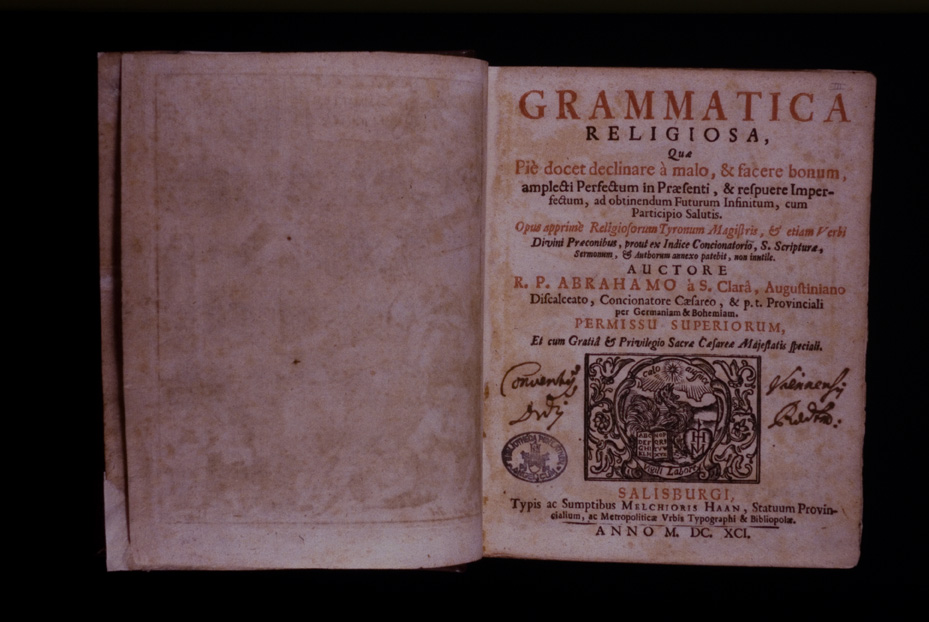 GRAMMATICA
RELIGIOSA,
Quæ
Piè docet declinare à malo, & facere bonum,
amplecti Perfectum in Præsenti, & respuere Imper-
fectum, ad obtinendum Futurum Infinitum, cum
Participio Salutis.
Opus apprimè Religiosorum Tyronum Magistris, & etiam Verbi
Divini Præconibus, prout ex Indice Concionatorio, S. Scripturæ,
Sermonum, & Authorum annexo patebit, non inutile.
AUCTORE
R. P. ABRAHAMO à S. Clarâ, Augustiniano
Discalceato, Concionatore Cæsareo, & p. t. Provinciali
per Germaniam & Bohemiam.
PERMISSU SUPERIORUM,
Et cum Gratiâ & Privilegio Sacræ Cæsareæ Majestatis speciali.
Conventûs
Viennensis
IH
Vigili Labore
SALISBURGI,
Typis ac Sumptibus MELCHIORIS HAAN, Statuum Provin-
cialium, ac Metropoliticæ Urbis Typographi & Bibliopolæ.
ANNO M. DC. XCI.